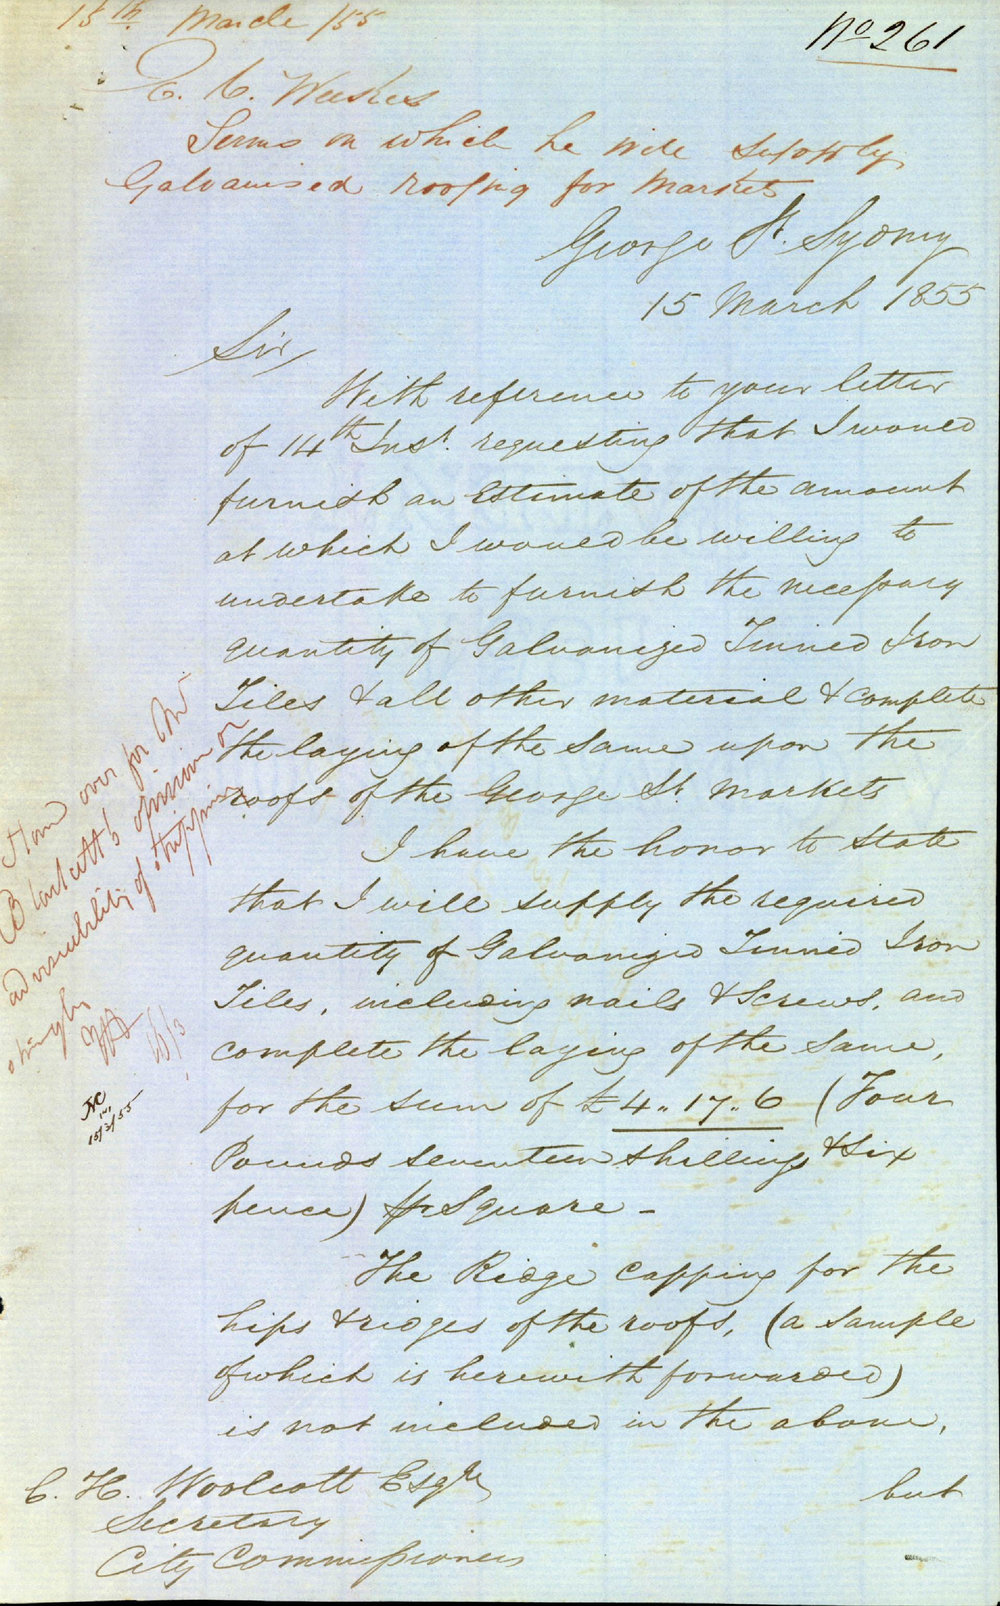 15th. March /55
No 261
E. C. Weekes
Terms on which he will supply
Galvanised roofing for Markets
George St. Sydney
15 March 1855
Sir,
With reference to your letter
of 14th Inst. requesting that I would
furnish an Estimate of the amount
at which I would be willing to
undertake to furnish the necessary
quantity of Galvanized Tinned Iron
Tiles & all other material & complete
the laying of the same upon the
roofs of the George St. Markets
I have the honor to State
that I will supply the required
quantity of Galvanized Tinned Iron
Tiles, including nails & Screws, and
complete the laying of the same,
for the sum of £4.. 17.. 6 (Four
Pounds seventeen shillings & six
pence) pr Square -
The Ridge capping for the
hips & ridges of the roofs, (a sample
of which is herewith forwarded)
is not included in the above,
but
C. H. Woolcott Esqre
Secretary
City Commissioners
over for Mr
opinion on
advisability of stripping
shingles
15/3
15/3/55